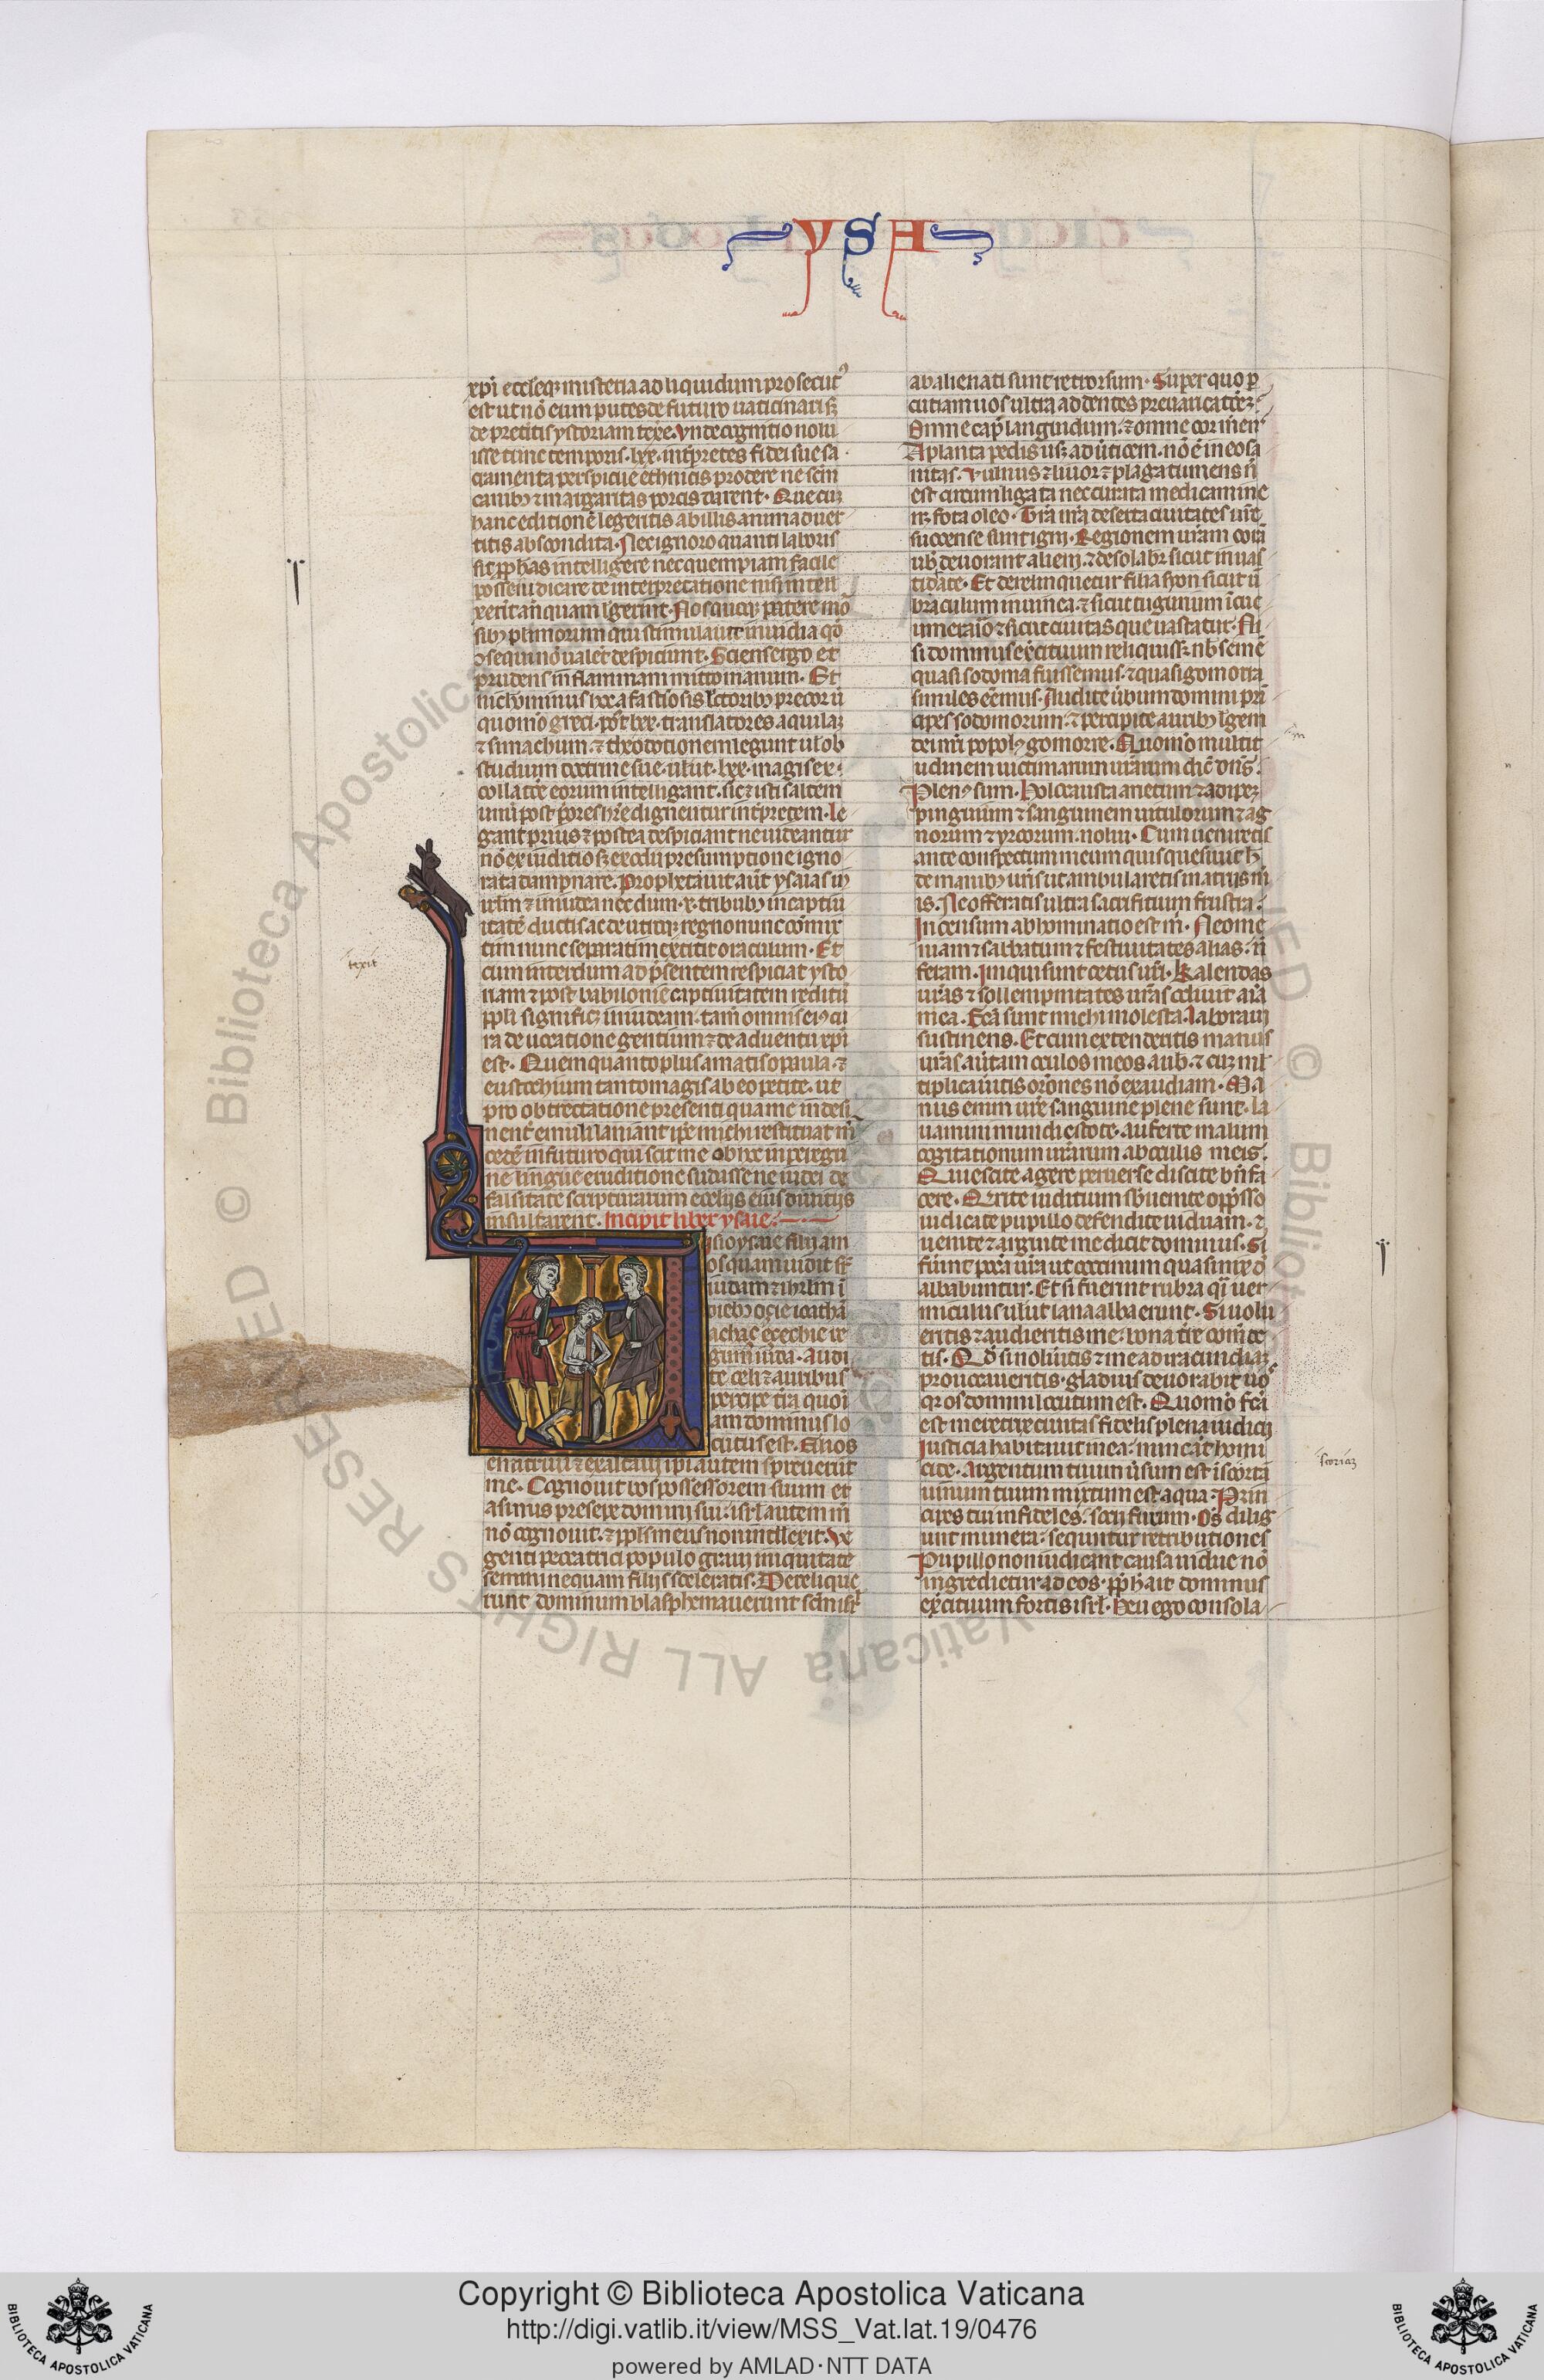 YSA
xp̄i ecc̄eseq; misteria ad liquidum prosecut⁹
est ut nō eum putes de futuro uaticinari sꝫ
de preteritis ystoriam texere. Vnde cognitio nolu
isse tunc temporis .lxx. int̄pretes fidei sue sa
cramenta perspicue ethnicis prodere ne sc̄m
canibꝫ ⁊ margaritas porcis darent. Que cū
hanc editionē legeritis ab illis animaduer
titis abscondita. Nec ignoro quanti laboris
sit ꝓph̄as intelligere nec quempiam facile
posse iudicare de interpretatione nisi intell
xerit an̄ quam leḡerint. Nos quoq; patere mo
sibꝫ plurimorum qui stimulante inuidia qd̄
ꝯsequi nō ualet despiciunt. Sciens ergo et
prudens in flammam mitto manum. Et
nichominus hoc a fastidiosis lectoribꝫ precor ū
quomō greci. post lxx. translatores aquilaꝫ
⁊ simachum. ⁊ theodotionem legunt ul̄ ob
studium doctrine sue. ul̄ ut .lxx. magis ex
collatōe eorum intelligant. sic ⁊ isti saltem
unū post priores hr̄e dignentur int̄pretem. Le
gant prius ⁊ postea despiciant ne uideantur
nō ex iuditio sꝫ ex odii presumptione igno
rata dampnare. Prophetauit aūt ysaias in
irl̄m ⁊ in iudea nec dum .x. tribubꝫ in captiu
itatē ductis ac de utriq; regno nunc com̄ix
tim nunc separatim texitit oraculum. Et
cum interdum ad p̄sentem respiciat ysto
riam ⁊ post babilonie captiuitatem reditū
ꝓpl̄i significꝫ in iudeam. tam̄ omnis ei⁹ cu
ra de uocatione gentium ⁊ de aduentu xp̄i
est. Quem quanto plus amatis o paula ⁊
eustochium tanto magis ab eo petite. ut
pro obtrectatione presenti qua me indesi
nent̄ emuli laniant ip̄e michi restituat m̄
cedē in futuro qui scit me ob hoc in peregri
ne lingue eruditione sudasse ne iudei de
falsitate scripturarum eccl̄iis eius diutiꝰ
insultarent. Incipit liber ysaie.
Visio ysaie filii am
os quam uidit sr̄
iudam ⁊ ihrl̄m ī
diebꝫ ozie ioathā
achaz ezechie re
gum iuda. Audi
te celi ⁊ auribus
percipe t̄ra quoī
am dominus lo
cutus est. Filios
enutriui ⁊ exaltaui ip̄i autem spreuerūt
me. Cognouit bos possessorem suum et
asinus presepe domini sui. isr̄l autem m̄
nō cognouit. ⁊ ꝓpl̄s meus non intellexit. Ve
genti peccatrici populo graui iniquitate
semini nequam filiis sceleratis. Derelique
runt dominum blasphemauerunt sc̄m isr̄l
abalienati sunt retrorsum. Super quo ꝑ
cutiam uos ultra addentes preuaricatōeꝫ
Omne cap̄ languidum. ⁊ omne cor meren̄
A planta pedis usꝫ ad ūticem. nō ē in eo sa
nitas. Vulnus ⁊ liuor ⁊ plaga tumens n̄
est circumligata nec curata medicamine
nꝫ fota oleo. T̄ra ur̄a deserta ciuitates ur̄e
succense sunt igni. Regionem uram corā
uob̄ deuorant alieni. ⁊ desolabr̄ sicut in uas
titate. Et derelinquetur filia syon sicut ū
braculum in uinea. ⁊ sicut tugurium ī cuc
umeraīo ⁊ sicut ciuitas que uastatur. Ni
si dominus exercituum reliquissꝫ nb̄ semē
quasi sodoma fuissemus. ⁊ quasi gomorra
similes eēmus. Audite ūbum domini pri
cipes sodomorum. ⁊ percipite auribꝫ legem
dei nr̄i popol⁹ gomorre. Quomō multit
udinem uictimarum urarum dic̄ dn̄s.
Plen⁹ sum. Holocausta arietum ⁊ adipeꝫ
pinguium ⁊ sanguinem uitulorum ⁊ ag
norum ⁊ yrcorum. nolui. Cum ueniretis
ante conspectum meum quis quesiuit h̄
de manibꝫ ur̄is ut ambularetis in atriis m
is. Ne offeratis ultra sacrificium frustra.
Incensum abhominatio est m̄. Neome
niam ⁊ sabbatum ⁊ festiuitates alias. n̄
feram. Iniqui sunt cetus ur̄i. Kalendas
ur̄as ⁊ sollempnitates ur̄as odiuit aīa
mea. Fc̄a sunt michi molesta. Laboraui
sustinens. Et cum extenderitis manus
ur̄as. aūtam oculos meos a uob̄. ⁊ cuꝫ ml̄
tiplicaueritis or̄ones nō exaudiam. Ma
nus enim ur̄e sanguine plene sunt. La
uamini mundi estote. auferte malum
cogitationum urarum ab oculis meis.
Quiescite agere peruerse discite bn̄ fa
cere. Querite iuditium sb̄uenite opp̄sso
iudicate pupillo defendite uiduam. ⁊
uenite ⁊ arguite me dicit dominus. Si
fūint pc̄ca ur̄a ut coccinum quasi nix d̄
albabuntur. Et si fuerint rubra qi uer
miculus uelut lana alba erunt. Si uolu
eritis ⁊ audieritis me. bona tr̄e comede
tis. Qd̄ si nolūitis ⁊ me ad iracundiaꝫ
prouocaueritis. gladius deuorabit uos
qꝛ os domini locutum est. Quomō fc̄a
est meretrix ciuitas fidelis plena iudicij
Iusticia habitauit in ea. nunc aūt homi
cide. Argentum tuum ūsum est ī scoriā
uinum tuum mixtum est aqua. Prin
cipes tui infideles. socij furum. Os̄ dilig
unt munera. sequntur retributiones
Pupillo non iudicant causa uidue nō
ingredietur ad eos. ꝓph̄ ait dominus
exercituum fortis isr̄l. Heu ego consola
texit
scoriaꝫ
Copyright © Biblioteca Apostolica Vaticana
http://digi.vatlib.it/view/MSS_Vat.lat.19/0476
powered by AMLAD·NTT DATA
BIBLIOTECA APOSTOLICA VATICANA
BIBLIOTECA APOSTOLICA VATICANA